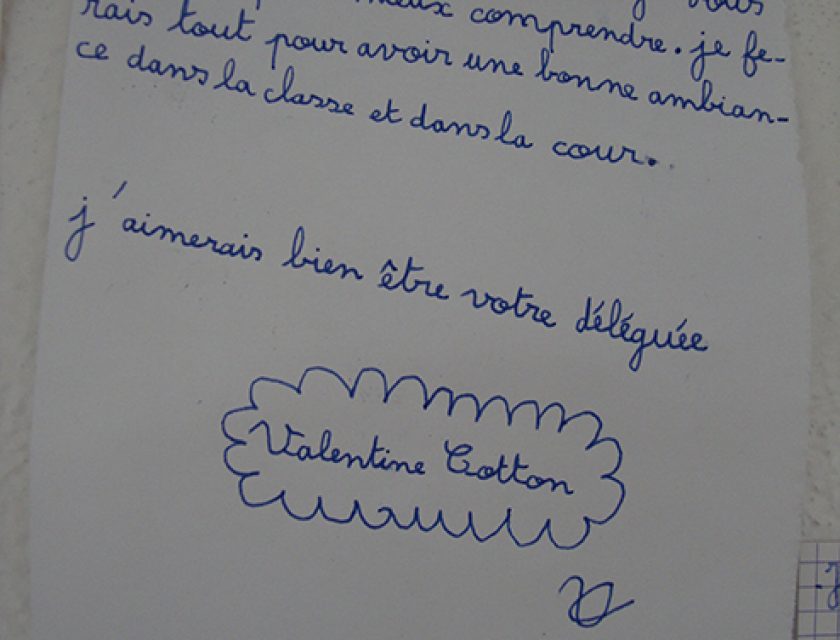 mieux comprendre. je fe-
rais tout pour avoir une bonne ambian-
ce dans la classe et dans la cour.
j'aimerais bien être votre déléguée
Valentine Cotton